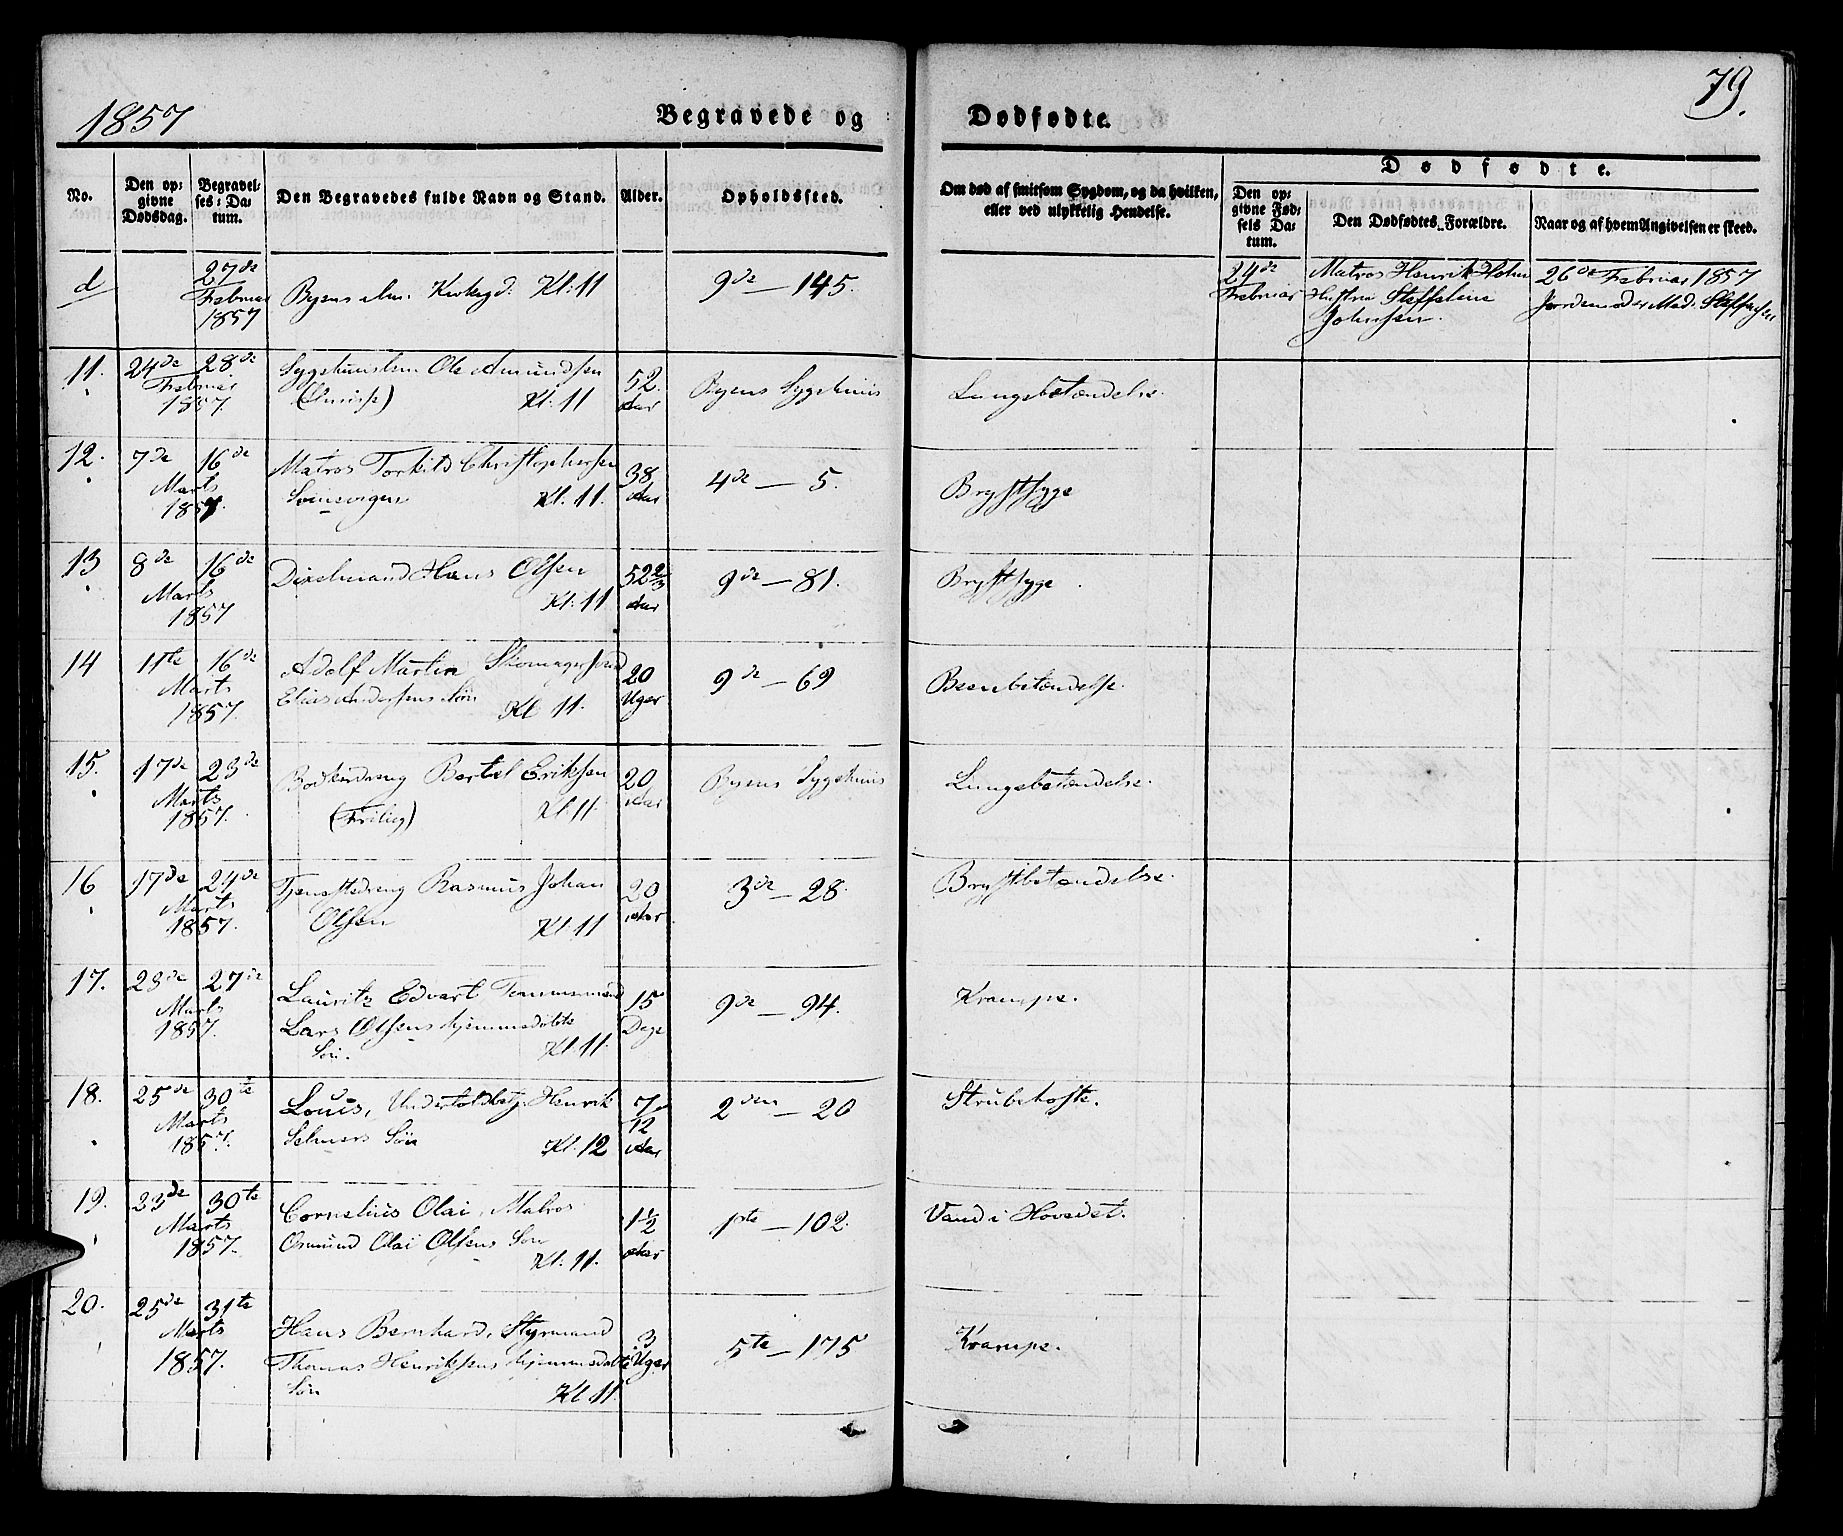 1857
Begravede og Dødfødte.
79.
No.
Den op-
givne
Dødsdag.
Begravel-
ses-Da-
tum.
Den Begravedes fulde Navn og Stand.
Alder.
Opholdssted.
Om død af smitsom Sygdom, og da hvilken,
eller ved ulykkelig Hendelse.
Dødfødte.
Den op-
givne Fød-
sels Da-
tum.
Den Dødfødtes Forældre.
Naar og af hvem Angivelsen er skeed.
d 27de Februar 1857 Byens alm. Kirkegd: Kl: 11 9de — 145. 24de Februar Matros Henrik Holm 26de Februar 1857
Hustru Steffeline Jordemoder Mad.
Johnsen.
11. 24de 28de Ole Amundsen 52 Byens Sygehuus Lungebetændelse.
Februar
1857. Kl: 11 Aar
12. 7de 16de Matros Torkild Christophersen 38 4de — 5. Brystsyge
Marts Kl. 11. Aar
1857.
13 8de 16de Hans Olsen 52 2/3 9de — 81. Brystsyge
Marts Kl: 11 Aar
1857
14 11te 16de Adolf Martin 20 9de — 69 Beenbetændelse.
Marts Elias Søn Uger
1857. Kl 11.
15. 17de 23de Bertel Eriksen 20 Byens Sygehuus Lungebetændelse.
Marts Kl. 11. Aar
1857.
16 17de 24de Tjenestedreng Rasmus Johan 20 3de — 28. Brystbetændelse.
Marts Olsen Kl: 11 Aar
1857.
17. 23de 27de Lauritz Edvart Tømmermand 15 9de — 94. Krampe.
Marts Lars Olsens hjemmedøbte Dage
1857. Søn. Kl: 11.
18. 25de 30te Louis, Henrik 7/12 2den — 20 Strubehoste.
Marts Selmers Søn Kl: 12 Aar
1857.
19. 23de 30te Cornelius Olai, Matros 1 1/2 1ste — 102. Vand i Hovedet.
Marts Osmund Olai Olsens Søn Aar
1857. Kl. 11.
20. 25de 31te Hans Bernhard, Styrmand 3 5te — 175 Krampe.
Marts Thomas Henriksens hjemmedøbte Uger
1857. Søn Kl 11.